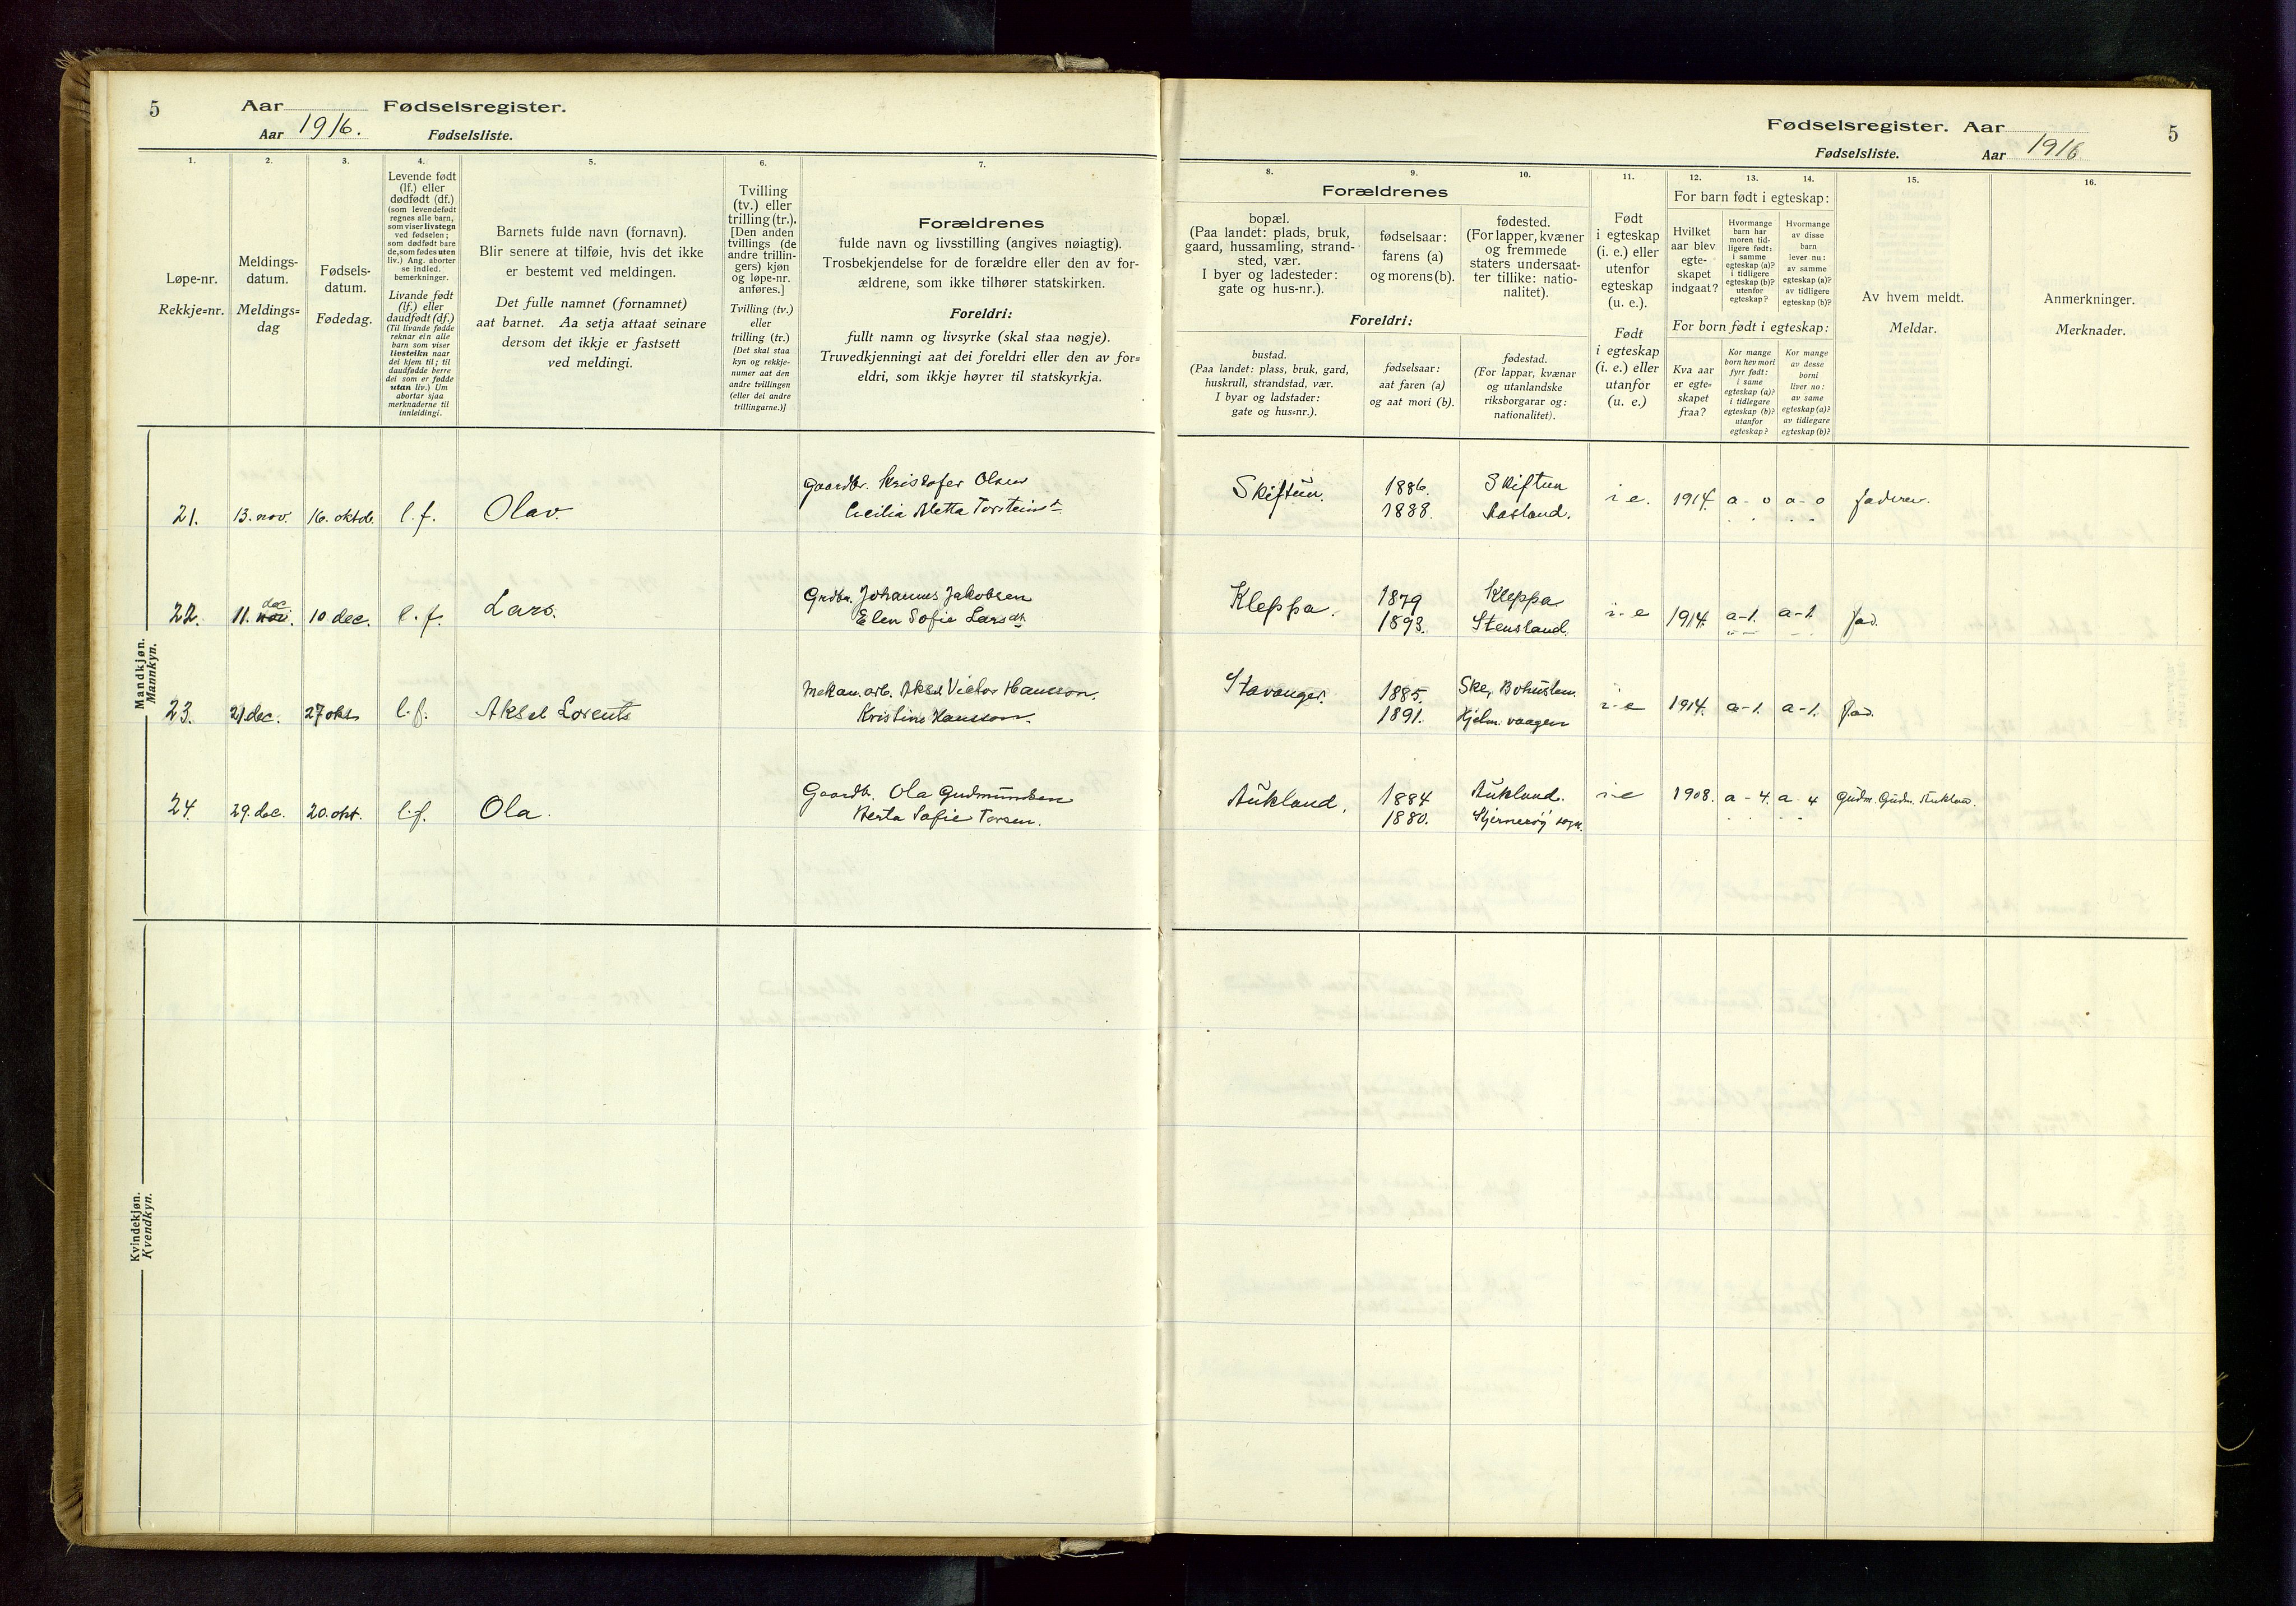 5 Aar Fødselsregister.
Aar 1916. Fødselsliste.
1. 2. 3. 4. 5. 6. 7.
Løpe-nr.
Rekkje=nr.
Meldings-
datum.
Meldings=
dag
Fødsels-
datum.
Fødedag.
Levende født
(lf.) eller
dødfødt (df.)
(som levendefødt
regnes alle barn,
som viser livstegn
ved fødselen;
som dødfødt bare
de, som fødes uten
liv.) Ang. aborter
se indled.
bemerkninger.
Livande født
(lf.) eller
daudfødt (df.)
(Til livande fødde
reknar ein alle
barn som viser
livsteikn naar
dei kjem til; til
daudfødde berre
dei som er fødde
utan liv.) Um
abortar sjaa
merknaderne til
innleidingi.
Barnets fulde navn (fornavn).
Blir senere at tilføie, hvis det ikke
er bestemt ved meldingen.
Det fulle namnet (fornamnet)
aat barnet. Aa setja attaat seinare
dersom det ikkje er fastsett
ved meldingi.
Tvilling
(tv.) eller
trilling (tr.).
[Den anden
tvillings (de
andre trillin-
gers) kjøn
og løpe-nr.
anføres.]
Tvilling (tv.)
eller
trilling (tr.)
[Det skal staa
kyn og rekkje-
numer aat den
andre tvillingen
(eller dei andre
trillingarne.)]
Forældrenes
fulde navn og livsstilling (angives nøiagtig).
Trosbekjendelse for de forældre eller den av for-
ældrene, som ikke tilhører statskirken.
Foreldri:
fullt namn og livsyrke (skal staa nøgje).
Truvedkjenningi aat dei foreldri eller den av for=
eldri, som ikkje høyrer til statskyrkja.
Mandkjøn.
Mannkyn.
21. 13. nov. 16. oktob. l.f. Olav. Gaardbr. Kristofer Olsen
Cecilia Metta Torsteinsd.
22. 11. nov. dec. 10 dec. l.f. Lars. Grdbr. Johannes Jakobsen
Elen Sofie Larsdt.
23. 21 dec. 27 okt. l.f. Aksel Lorents Mekan. arb. Aksel Victor Hansson.
Kristine Hansson.
24. 29. dec. 20. okt. l.f. Ola. Gaardb. Ola Gudmundsen
Berta Sofie Torsen.
Kvindekjøn.
Kvendkyn.
Fødselsregister. Aar 5
Fødselsliste. Aar 1916
8. 9. 10. 11. 12. 13. 14. 15. 16.
Forældrenes
bopæl.
(Paa landet: plads, bruk,
gaard, hussamling, strand-
sted, vær.
I byer og ladesteder:
gate og hus-nr.).
fødselsaar:
farens (a)
og morens (b).
fødested.
(For lapper, kvæner
og fremmede
staters undersaat-
ter tillike: natio-
nalitet).
Foreldri:
bustad.
(Paa landet: plass, bruk, gard,
huskrull, strandstad, vær.
I byar og ladstader:
gate og hus=nr.).
fødselsaar:
aat faren (a)
og aat mori (b).
fødestad.
(For lappar, kvænar
og utanlandske
riksborgarar og:
nationalitet).
Født
i egteskap
(i. e.) eller
utenfor
egteskap
(u. e.).
Født
i egteskap
(i. e.) eller
utanfor
(u. e.)
For barn født i egteskap:
Hvilket
aar blev
egte-
skapet
indgaat?
Hvormange
barn har
moren tid-
ligere født:
i samme
egteskap (a)?
i tidligere
egteskap (b)?
utenfor
egteskap?
Hvormange
av disse
barn
lever nu:
av samme
egteskap (a)?
av tidligere
egteskap (b)?
For born født i egteskap:
Kva aar
er egte=
skapet
fraa?
Kor mange
born hev mori
fyrr født:
i same
egteskap (a)?
i tidlegare
egteskap (b)?
utanfor
egteskap?
Kor mange
av desse
borni
liver no:
av same
egteskap (a)?
av tidlegare
egteskap (b)?
Av hvem meldt.
Meldar.
Anmerkninger.
Merknader.
Skiftun. 1886. Skiftun i e. 1914. a - 0 a - 0 faderen.
1888.
Kleppa. 1879 Kleppa i-e 1914. a-1. a-1. fad.
1893. Stensland.
Stavanger. 1885. Bohuslen. i-e 1914. a-1. a-1. fad.
1891. Hjelm. vaagen
Aukland. 1884 Aukland. i-e 1908. a - 4. a 4 Gudm. Gudm. Auklan.
1880. Sjernerøy sogn.